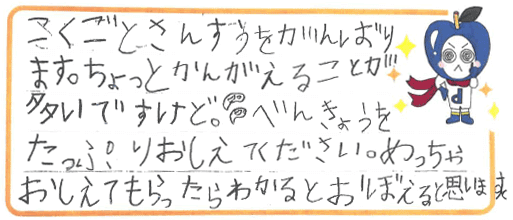 こくごとさんすうをがんばり
ます。ちょっとかんがえることが
多いですけど。べんきょうを
たっぷりおしえてください。めっちゃ
おしえてもらったらわかるとおぼえると思います
d